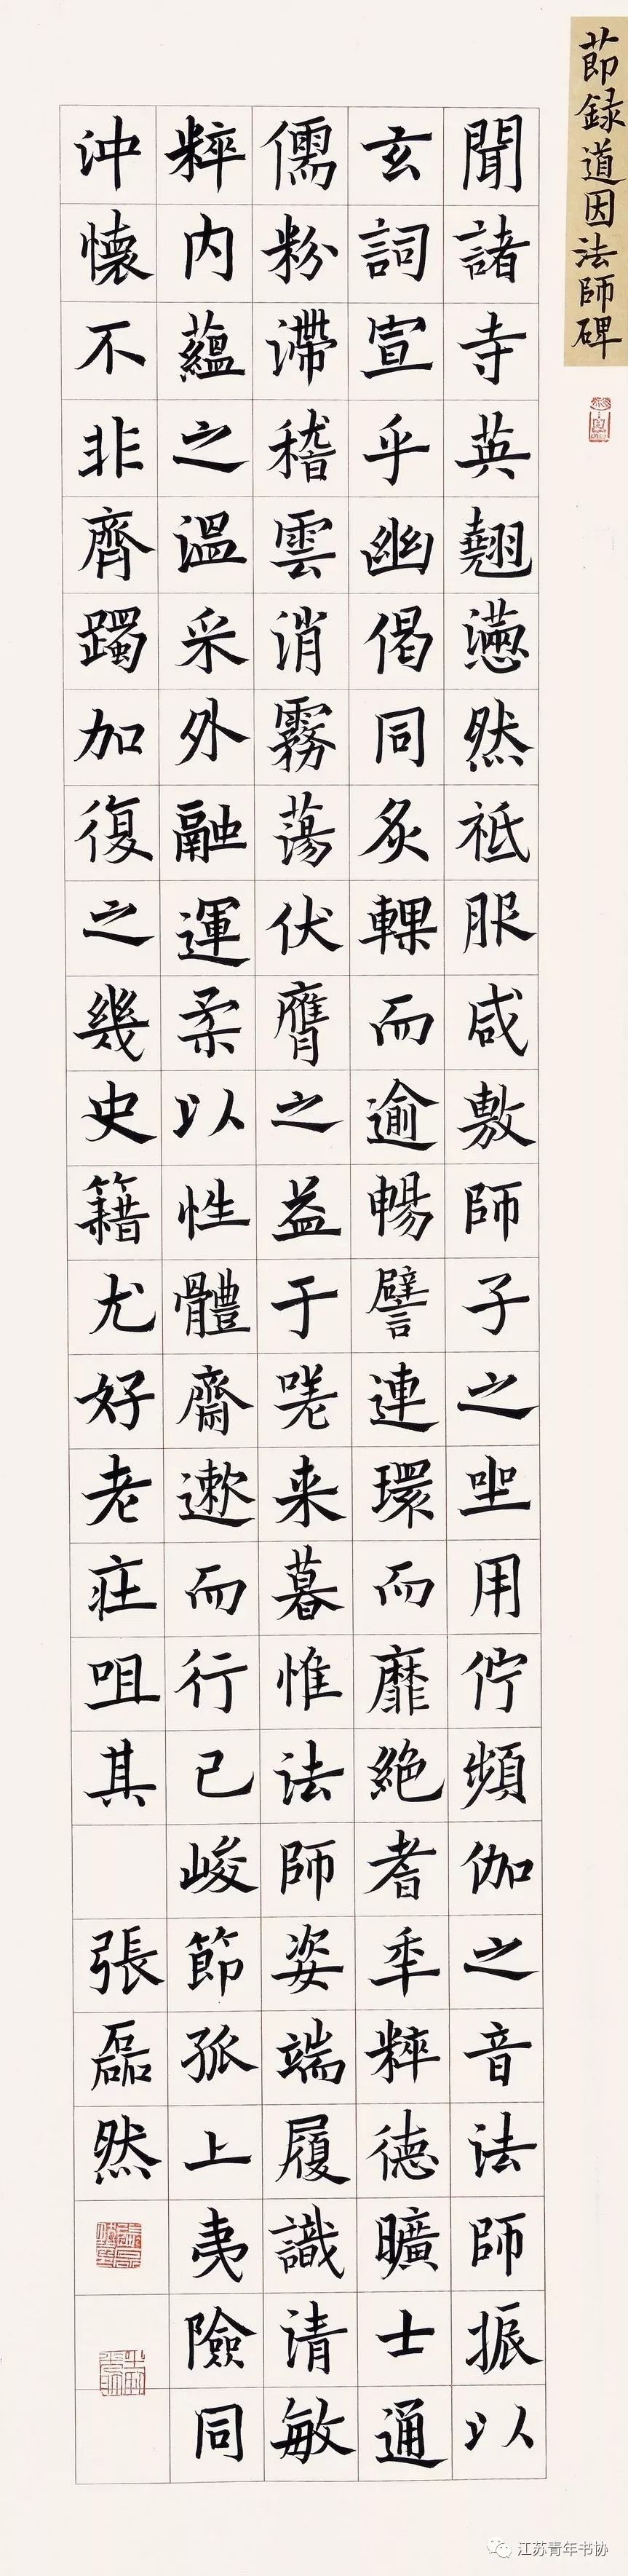 節録道因法師碑
聞諸寺英翹懣然祗服咸敷師子之坐用佇頻伽之音法師振以
玄詞宣乎幽偈同炙輠而逾暢譬連環而靡絶耆年粹德曠士通
儒粉滯稽雲消霧蕩伏膺之益于嗟来暮惟法師姿端履識清敏
粹内蘊之温采外融運柔以性體齋遬而行己峻節孤上夷險同
沖懷不非齊躅加復之幾史籍尤好老莊咀其
張磊然
江苏青年书协